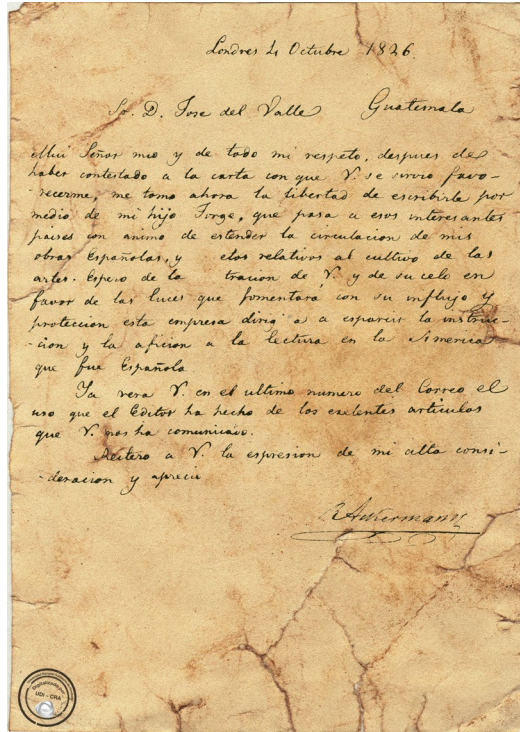 Londres 4 Octubre 1826.
Sr. D. Jose del Valle Guatemala
Mui Señor mio y de todo mi respeto, despues de
haber contestado a la carta con que V. se sirvio favo-
-recerme, me tomo ahora la libertad de escribirle por
medio de mi hijo Jorge, que pasa a esos interesantes
paises con animo de estender la circulacion de mis
obras Españolas, y elos relativos al cultivo de las
artes. Espero de la tracion de V. y de su celo en
favor de las luces que fomentara con su influjo y
proteccion esta empresa dirig a a esparcir la instruc-
-cion y la aficion a la lectura en la America
que fue Española
Ya vera V. en el ultimo numero del Correo el
uso que el Editor ha hecho de los exelentes articulos
que V. nos ha comunicado.
Reitero a V. la espresion de mi alta consi-
-deracion y aprecio
R Ackermann
Digitalizado por
UDI - CRA